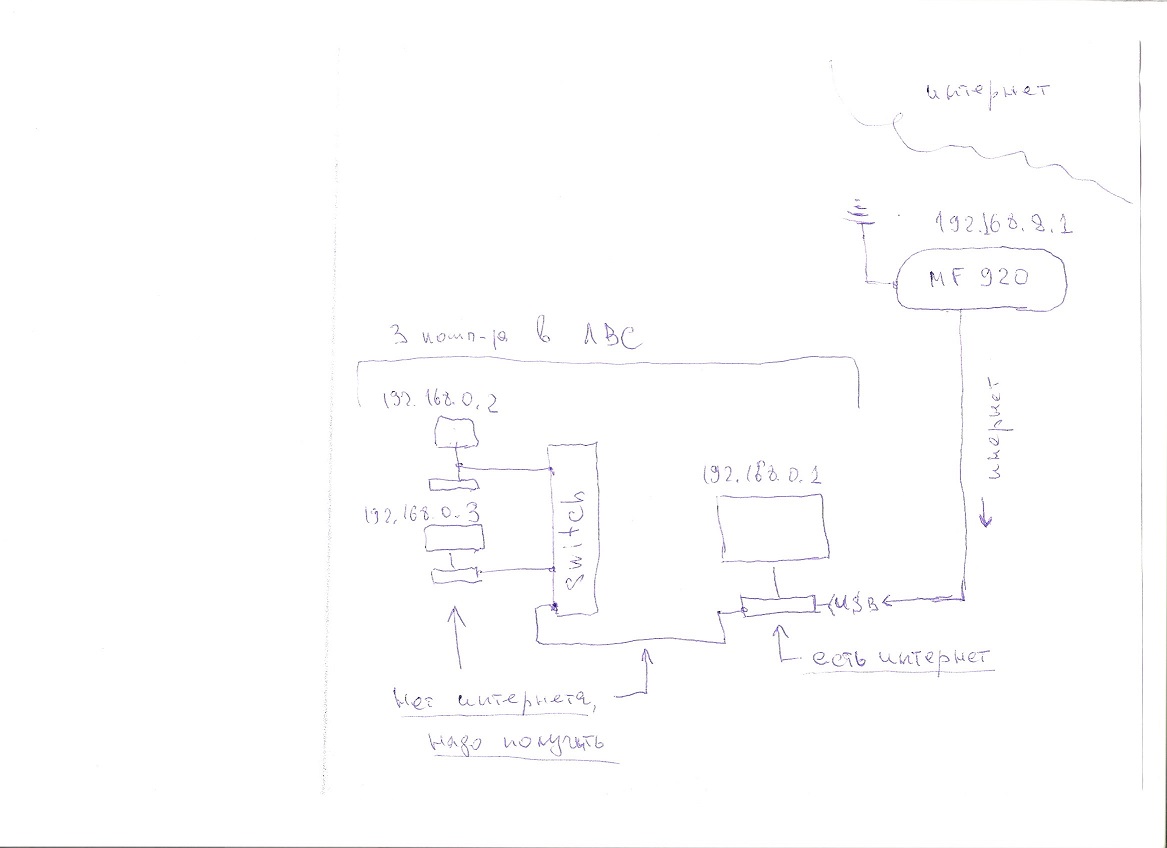 интернет
192.168.8.1
MF 920
интернет
3 комп-ра в ЛВС
192.168.0.2
192.168.0.3
Switch
192.168.0.1
USB
есть интернет
Нет интернета,
надо получить